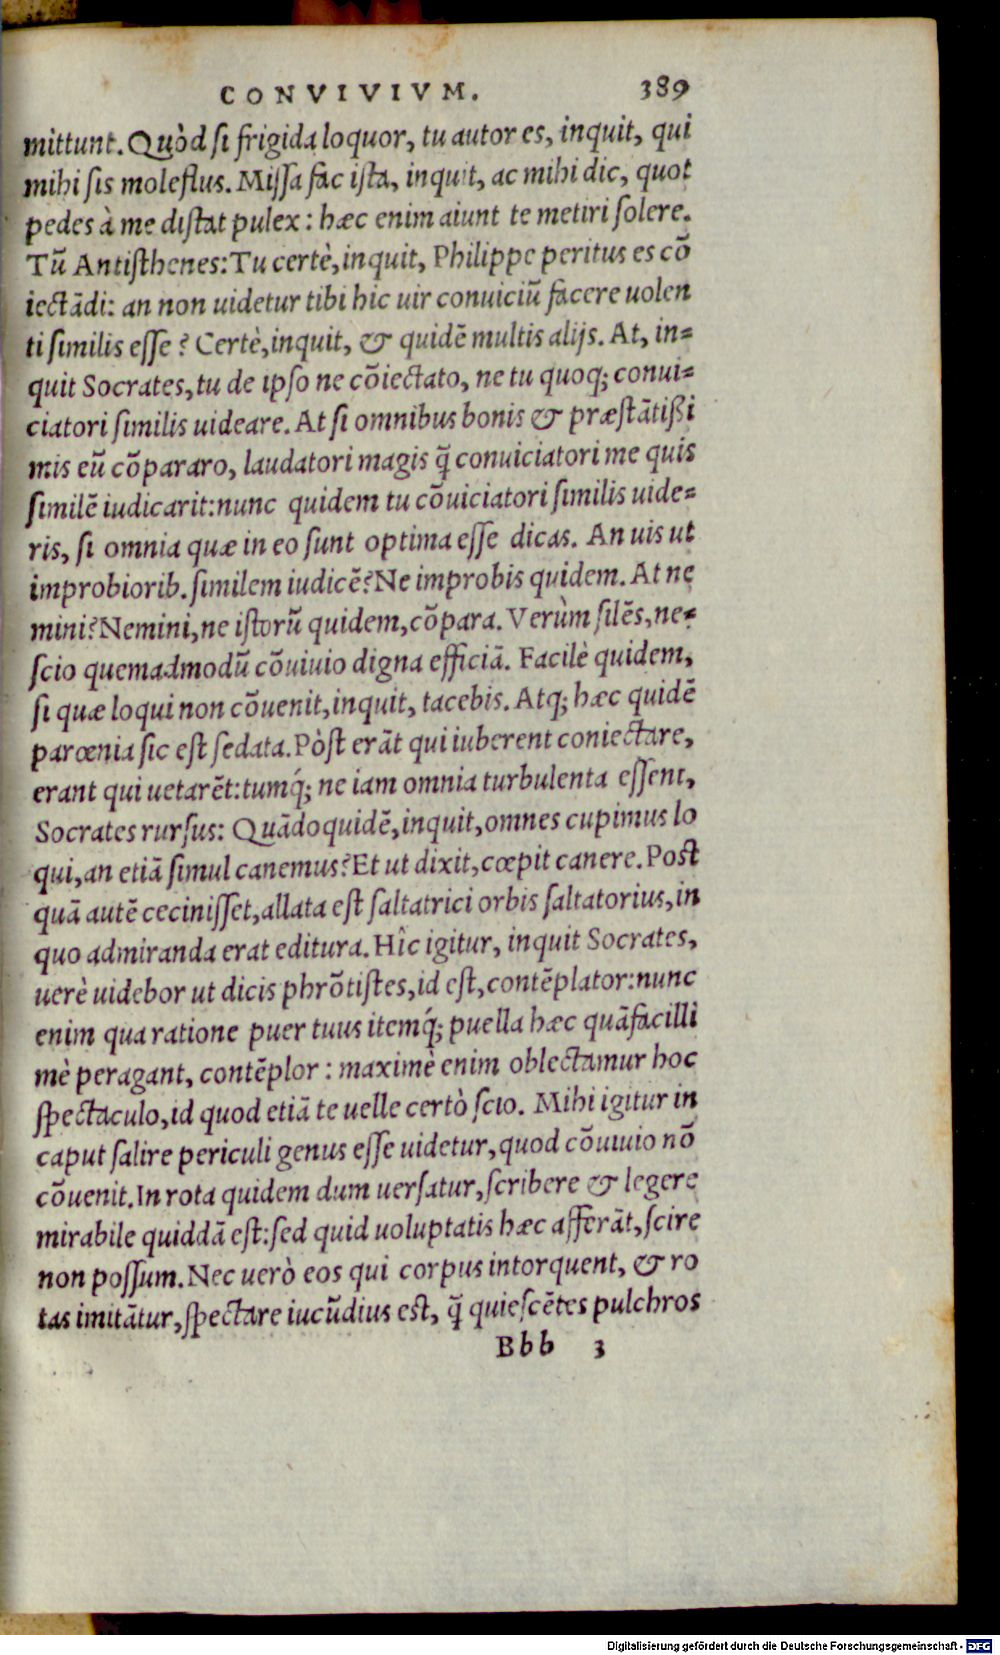 CONVIVIVM. 389
mittunt. Quòd si frigida loquor, tu autor es, inquit, qui
mihi sis molestus. Missa fac ista, inquit, ac mihi dic, quot
pedes à me distat pulex: hæc enim aiunt te metiri solere.
Tū Antisthenes: Tu certè, inquit, Philippe peritus es cō
iectādi: an non uidetur tibi hic uir conuiciū facere uolen
ti similis esse? Certè, inquit, & quidē multis alijs. At, in=
quit Socrates, tu de ipso ne cōiectato, ne tu quoq; conui=
ciatori similis uideare. At si omnibus bonis & præstātißi
mis eū cōpararo, laudatori magis q̃ conuiciatori me quis
similē iudicarit: nunc quidem tu cōuiciatori similis uide=
ris, si omnia quæ in eo sunt optima esse dicas. An uis ut
improbiorib. similem iudicē? Ne improbis quidem. At ne
mini? Nemini, ne istorū quidem, cōpara. Verùm silēs, ne=
scio quemadmodū cōuiuio digna efficiā. Facilè quidem,
si quæ loqui non cōuenit, inquit, tacebis. Atq; hæc quidē
parœnia sic est sedata. Pòst erāt qui iuberent coniectare,
erant qui uetarēt: tumq́; ne iam omnia turbulenta essent,
Socrates rursus: Quādoquidē, inquit, omnes cupimus lo
qui, an etiā simul canemus? Et ut dixit, cœpit canere. Post
quā autē cecinisset, allata est saltatrici orbis saltatorius, in
quo admiranda erat editura. Hîc igitur, inquit Socrates,
uerè uidebor ut dicis phrōtistes, id est, contēplator: nunc
enim qua ratione puer tuus itemq́; puella hæc quāfacilli
mè peragant, contēplor: maximè enim oblectamur hoc
spectaculo, id quod etiā te uelle certò scio. Mihi igitur in
caput salire periculi genus esse uidetur, quod cōuiuio nō
cōuenit. In rota quidem dum uersatur, scribere & legere
mirabile quiddā est: sed quid uoluptatis hæc afferāt, scire
non possum. Nec uerò eos qui corpus intorquent, & ro
tas imitātur, spectare iucūdius est, q̃ quiescētes pulchros
Bbb 3
Digitalisierung gefördert durch die Deutsche Forschungsgemeinschaft - DFG